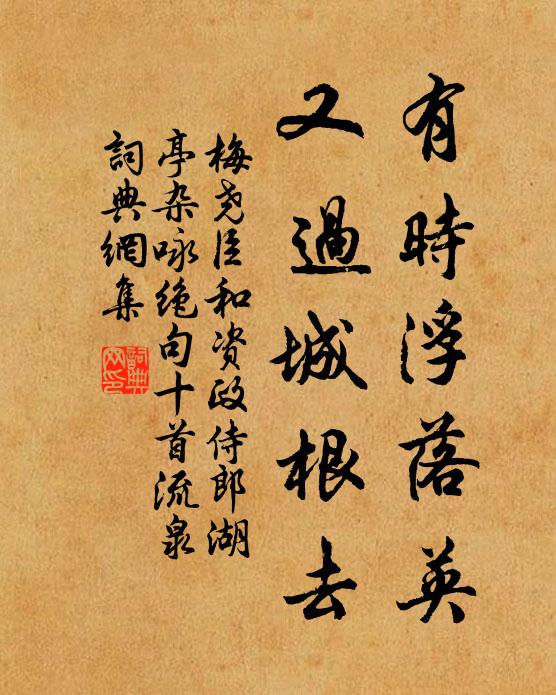 有時浮落英
又過城根去
梅尧臣和资政侍郎湖
亭杂咏绝句十首流泉
詞典網集
詞典
网印